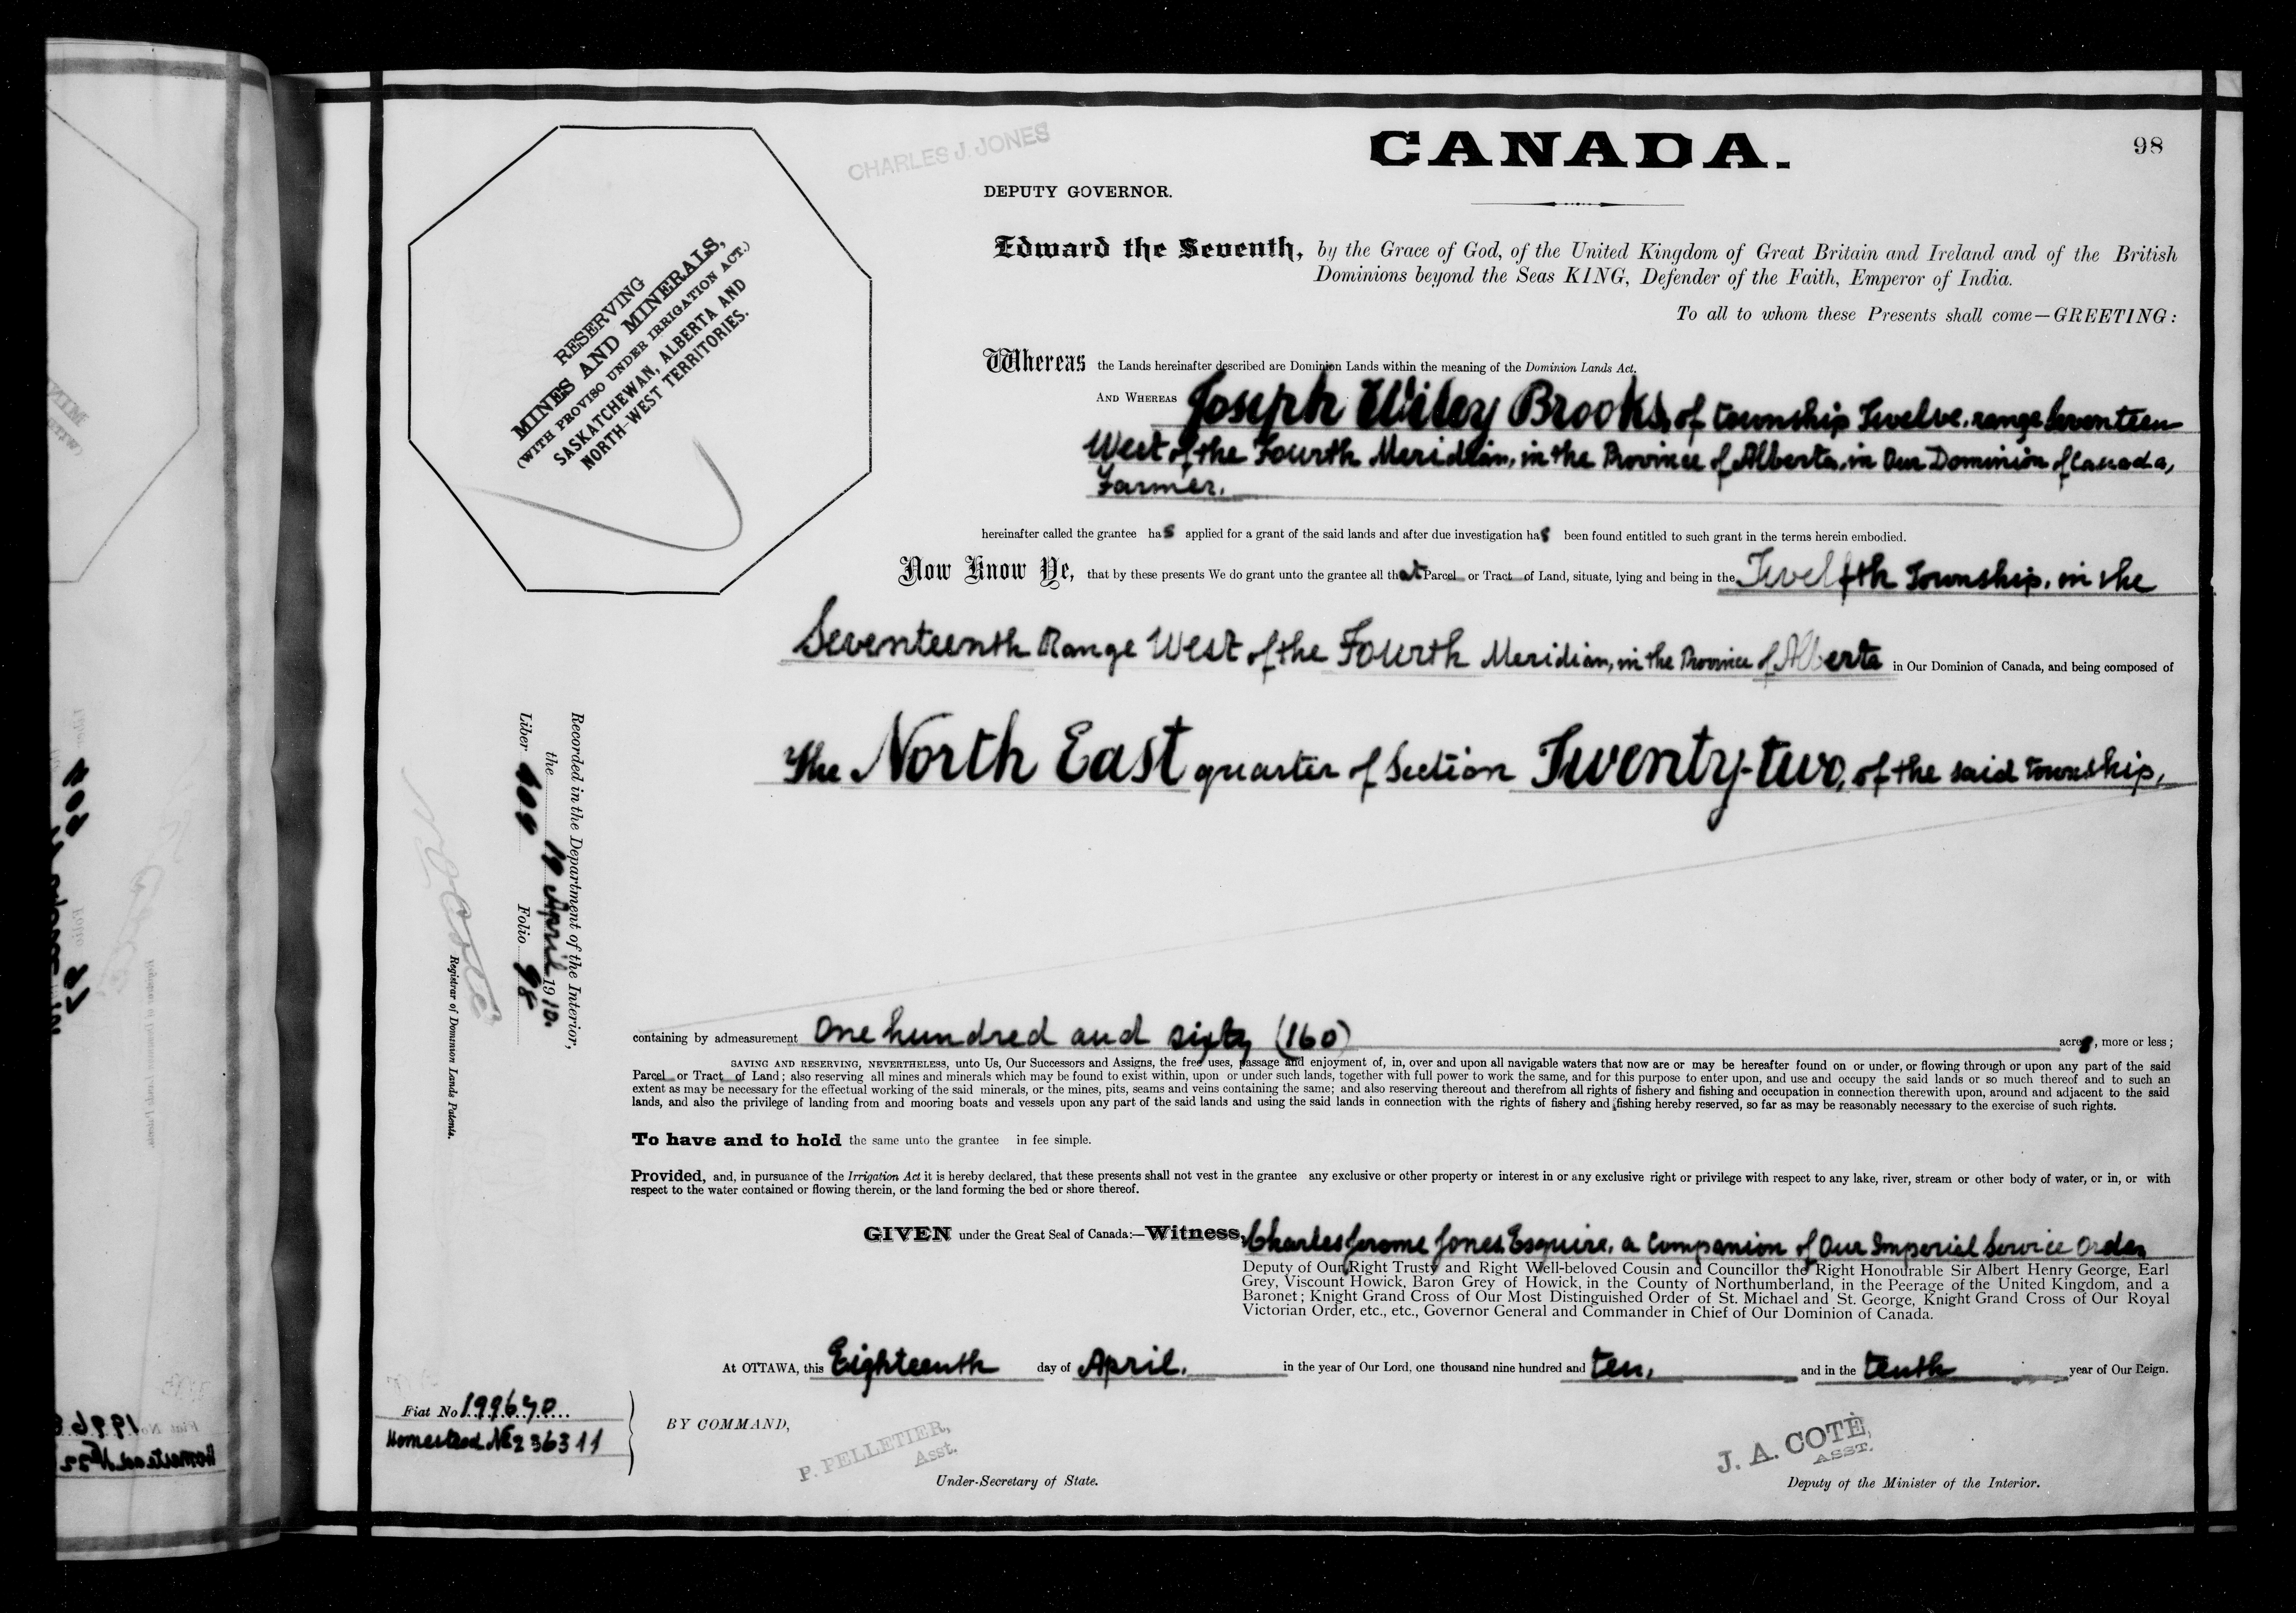 98
CHARLES J. JONES
CANADA.
DEPUTY GOVERNOR.
RESERVING
MINES AND MINERALS,
(WITH PROVISO UNDER IRRIGATION ACT.)
SASKATCHEWAN, ALBERTA AND
NORTH-WEST TERRITORIES.
Edward the Seventh, by the Grace of God, of the United Kingdom of Great Britain and Ireland and of the British
Dominions beyond the Seas KING, Defender of the Faith, Emperor of India.
To all to whom these Presents shall come—GREETING:
Whereas the Lands hereinafter described are Dominion Lands within the meaning of the Dominion Lands Act.
AND WHEREAS Joseph Wiley Brooks, of township Twelve, range Seventeen
West of the Fourth Meridian, in the Province of Alberta, in Our Dominion of Canada,
Farmer.
hereinafter called the grantee has applied for a grant of the said lands and after due investigation has been found entitled to such grant in the terms herein embodied.
Now Know Ye, that by these presents We do grant unto the grantee all that Parcel or Tract of Land, situate, lying and being in the Twelfth Township, in the
Seventeenth Range West of the Fourth Meridian, in the Province of Alberta in Our Dominion of Canada, and being composed of
The North East quarter of Section Twenty-two, of the said township,
Recorded in the Department of the Interior,
the 19 April 1910.
Liber 409 Folio 98
Registrar of Dominion Lands Patents.
containing by admeasurement One hundred and sixty (160) acres, more or less;
SAVING AND RESERVING, NEVERTHELESS, unto Us, Our Successors and Assigns, the free uses, passage and enjoyment of, in, over and upon all navigable waters that now are or may be hereafter found on or under, or flowing through or upon any part of the said
Parcel or Tract of Land; also reserving all mines and minerals which may be found to exist within, upon or under such lands, together with full power to work the same, and for this purpose to enter upon, and use and occupy the said lands or so much thereof and to such an
extent as may be necessary for the effectual working of the said minerals, or the mines, pits, seams and veins containing the same; and also reserving thereout and therefrom all rights of fishery and fishing and occupation in connection therewith upon, around and adjacent to the said
lands, and also the privilege of landing from and mooring boats and vessels upon any part of the said lands and using the said lands in connection with the rights of fishery and fishing hereby reserved, so far as may be reasonably necessary to the exercise of such rights.
To have and to hold the same unto the grantee in fee simple.
Provided, and, in pursuance of the Irrigation Act it is hereby declared, that these presents shall not vest in the grantee any exclusive or other property or interest in or any exclusive right or privilege with respect to any lake, river, stream or other body of water, or in, or with
respect to the water contained or flowing therein, or the land forming the bed or shore thereof.
GIVEN under the Great Seal of Canada:—Witness, Charles Jerome Jones Esquire, a Companion of Our Imperial Service Order
Deputy of Our Right Trusty and Right Well-beloved Cousin and Councillor the Right Honourable Sir Albert Henry George, Earl
Grey, Viscount Howick, Baron Grey of Howick, in the County of Northumberland, in the Peerage of the United Kingdom, and a
Baronet; Knight Grand Cross of Our Most Distinguished Order of St. Michael and St. George, Knight Grand Cross of Our Royal
Victorian Order, etc., etc., Governor General and Commander in Chief of Our Dominion of Canada.
At OTTAWA, this Eighteenth day of April, in the year of Our Lord, one thousand nine hundred and ten, and in the tenth year of Our Reign.
Fiat No 199640
Homestead No 236311
BY COMMAND,
P. PELLETIER,
Asst.
Under-Secretary of State.
J. A. COTÉ,
ASST.
Deputy of the Minister of the Interior.